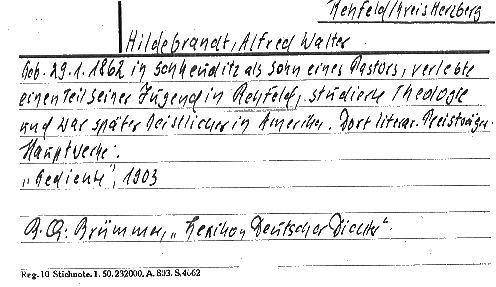 Rehfeld/Kreis Herzberg
Hildebrandt, Alfred Walter
Geb. 29.1.1862 in Schkeuditz als Sohn eines Pastors, verlebte
einen Teil seiner Jugend in Rehfeld, studierte Theologie
und war später Geistlicher in Amerika. Dort literar. Preisträger.
Hauptwerke:
„Gedichte", 1903
B. Qu: Brümmer, „Lexikon Deutscher Dichter".
Reg. 10 Stichnote. 1. 50. 232000. A. 893. S. 4662